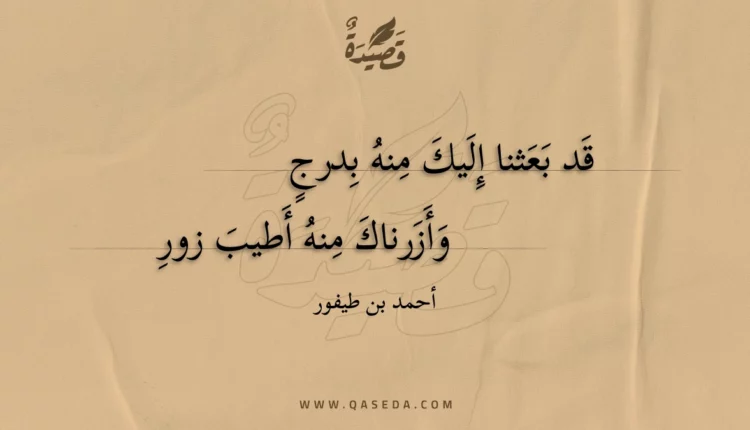 قَصِيْدَةٌ
قَد بَعَثنا إِلَيكَ مِنهُ بِدرجٍ
وَأَزَرناكَ مِنهُ أَطيبَ زورِ
أحمد بن طيفور
WWW.QASEDA.COM